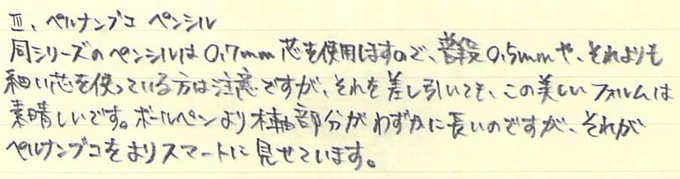 III. ペルナンブコ ペンシル
同シリーズのペンシルは0.7mm芯を使用しますので、普段0.5mmや、それよりも
細い芯を使っている方は注意ですが、それを差し引いても、この美しいフォルムは
素晴しいです。ボールペンより木軸部分がわずかに長いのですが、それが
ペルナンブコをよりスマートに見せています。